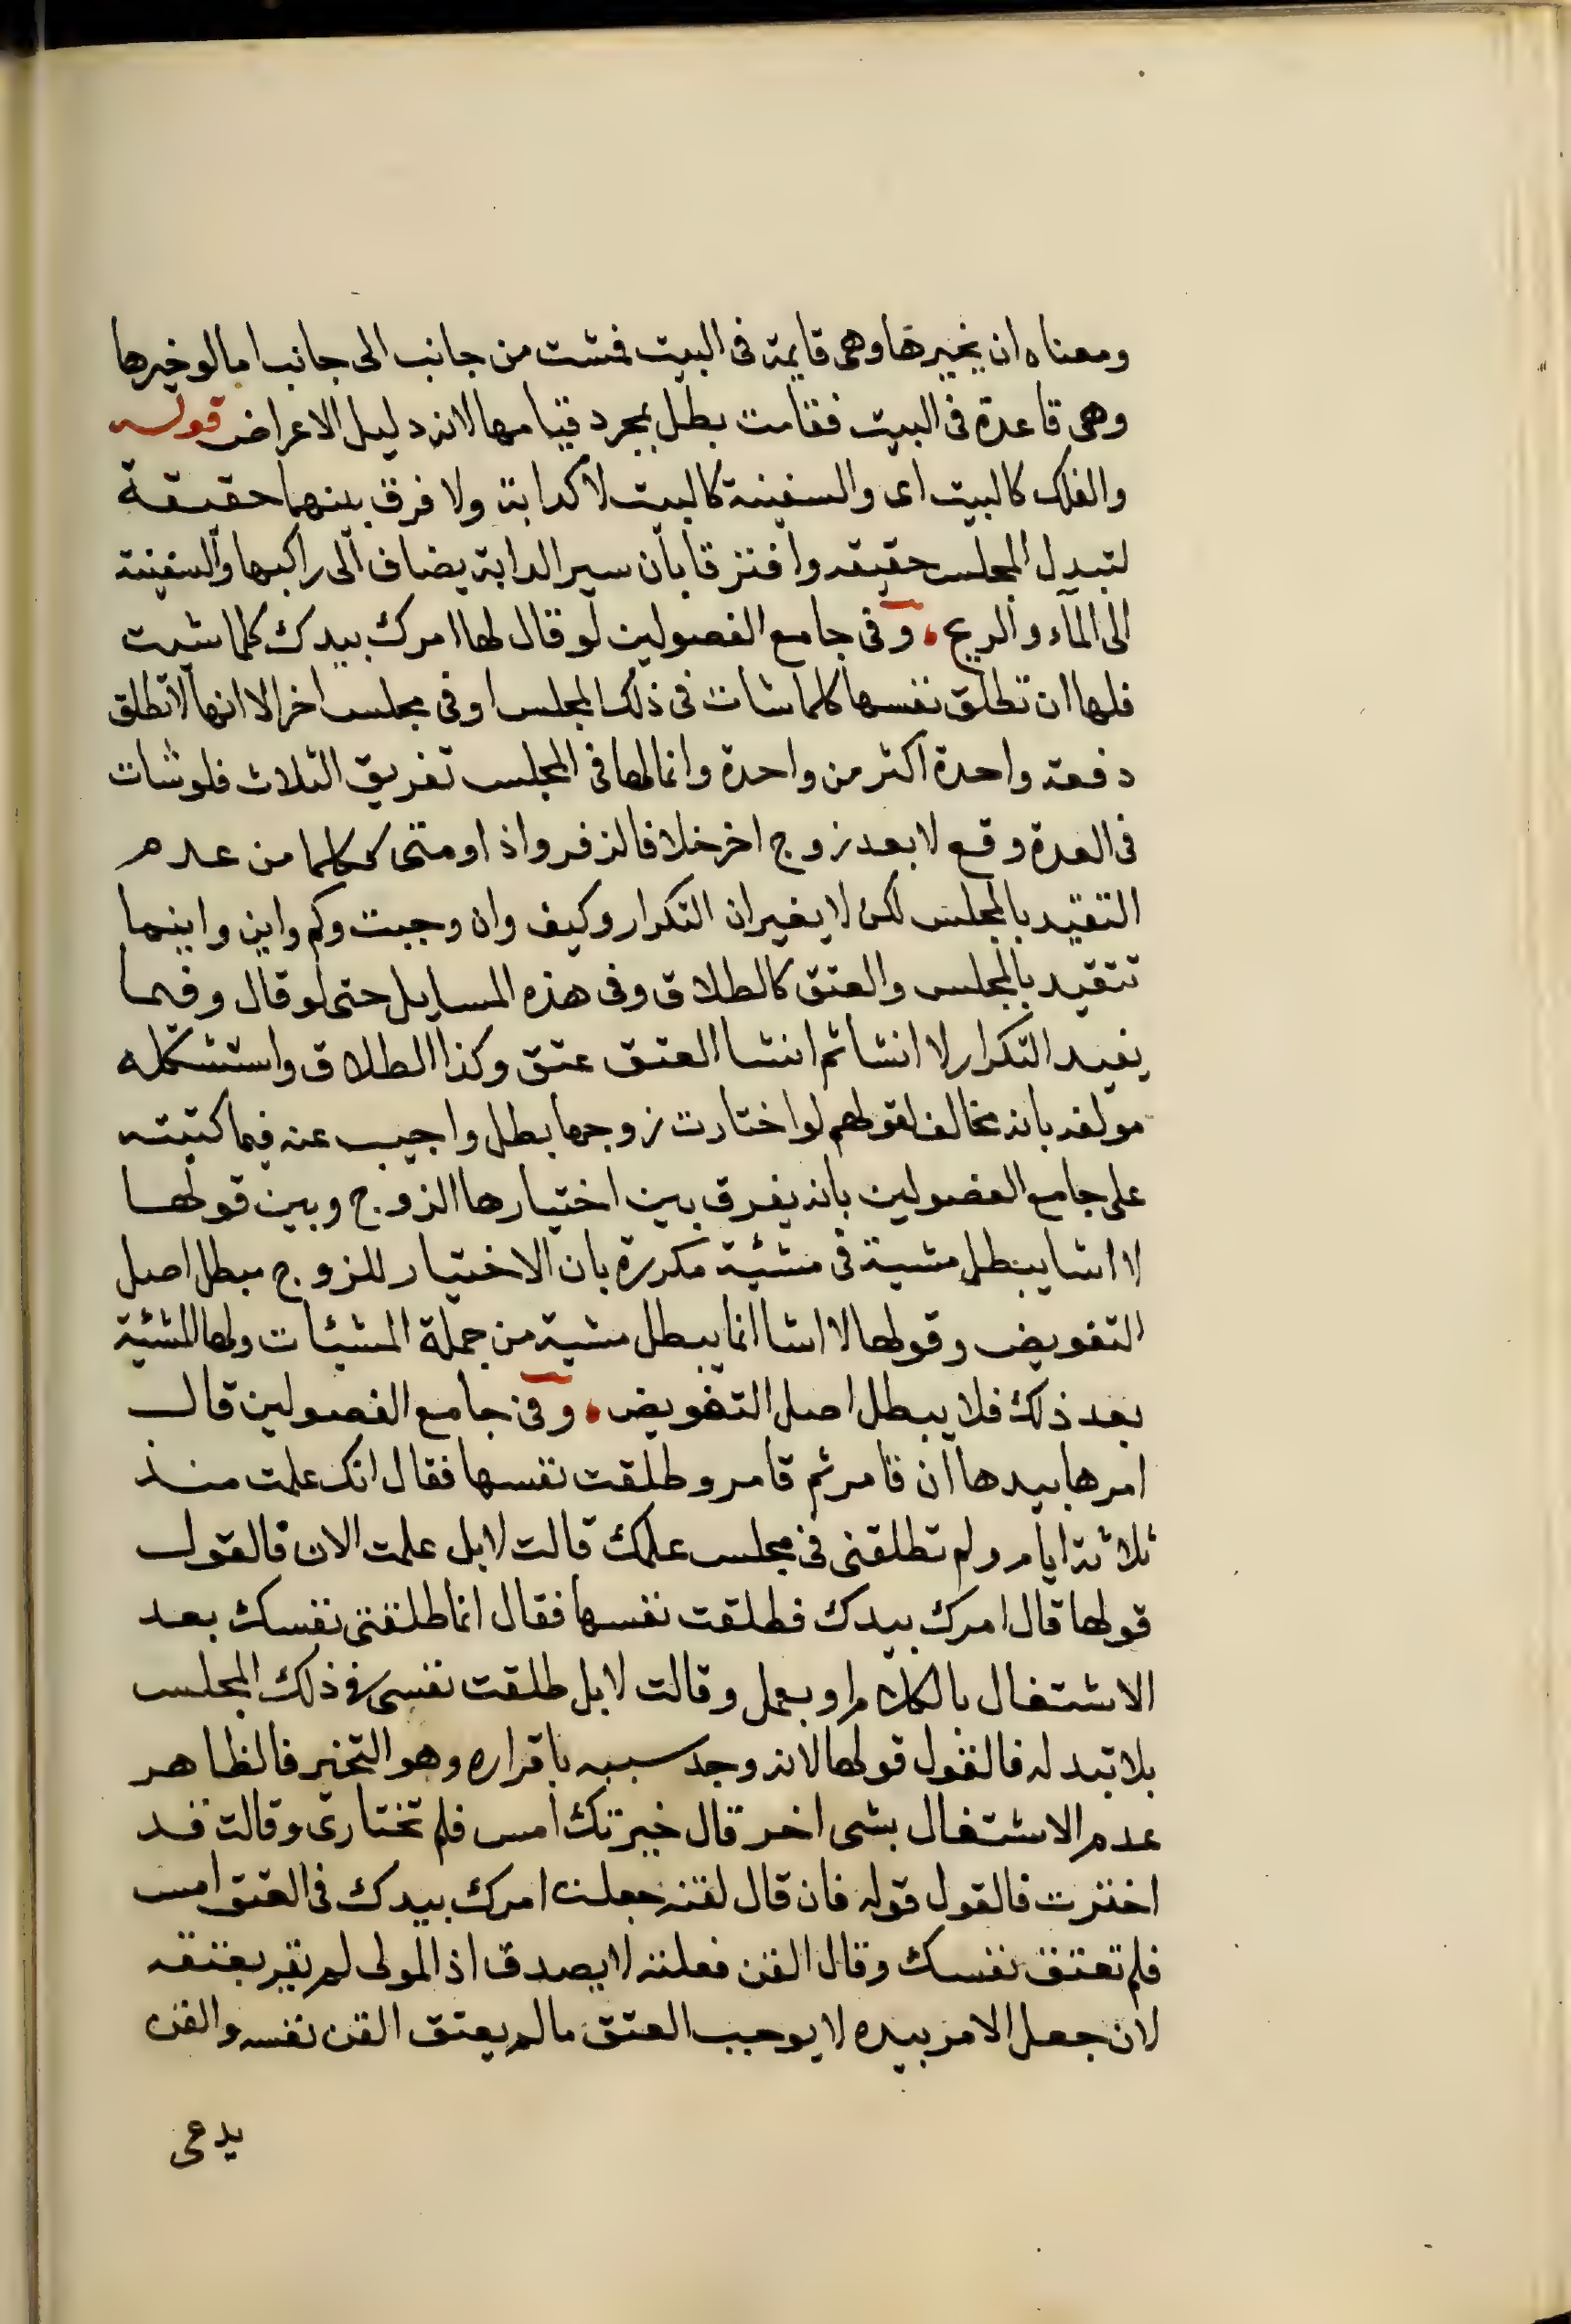 ومعناه ان يخيرها وهى قايمة فى البيت فمشت من جانب الى جانب اما لو خيرها
وهى قاعدة فى البيت فقامت بطل بمجرد قيامها لانه دليل الاعراض قوله
والفلك كالبيت اى والسفينة كالبيت لا كدابة ولا فرق بينهما حقيقة
لتبدل المجلس حقيقة وافترقا بان سير الدابة يضاف الى راكبها والسفينة
الى الماء والريح، وفى جامع الفصولين لو قال لها امرك بيدك كلما شيت
فلها ان تطلق نفسها كلما شات فى ذلك المجلس او فى مجلس اخر الا انها لا تطلق
دفعة واحدة اكثر من واحدة وانما لها فى المجلس تفريق الثلاث فلو شات
فى العدة وقع لا بعد زوج اخر خلافا لزفر واذا ومتى ككلما من عدم
التقيد بالمجلس لكن لا يفيدان التكرار وكيف وان وحيث وكم واين واينما
تتقيد بالمجلس والعتق كالطلاق وفى هذه المسايل حتى لو قال وفيما
يفيد التكرار لا انشا ثم انشا العتق عتق وكذا الطلاق واستشكله
مولفه بانه مخالف لقولهم لو اختارت زوجها بطل واجيب عنه فيما كتبته
على جامع الفصولين بانه يفرق بين اختيارها الزوج وبين قولها
لا اشا يبطل مشية فى مشئية مكررة بان الاختيار للزوج مبطل اصل
التفويض وقولها لا اشا انما يبطل مشية من جملة المشيئات ولها المشئية
بعد ذلك فلا يبطل اصل التفويض، وفى جامع الفصولين قال
امرها بيدها ان قامر ثم قامر وطلقت نفسها فقال انك علمت منذ
ثلاثة ايام ولم تطلقى فى مجلس علمك قالت لا بل علمت الان فالقول
قولها قال امرك بيدك فطلقت نفسها فقال انما طلقتى نفسك بعد
الاشتغال بالكلام او بعمل وقالت لا بل طلقت نفسى فى ذلك المجلس
بلا تبدله فالقول قولها لانه وجد سببه باقراره وهو التخير فالظاهر
عدم الاشتغال بشى اخر قال خيرتك امس فلم تختارى وقالت قد
اخترت فالقول قوله فان قال لقنه جعلت امرك بيدك فى العتق امس
فلم تعتق نفسك وقال القن فعلته لا يصدق اذ المولى لم يقر بعتقه
لان جعل الامر بيده لا يوجب العتق ما لم يعتق القن نفسه والقن
يدعى